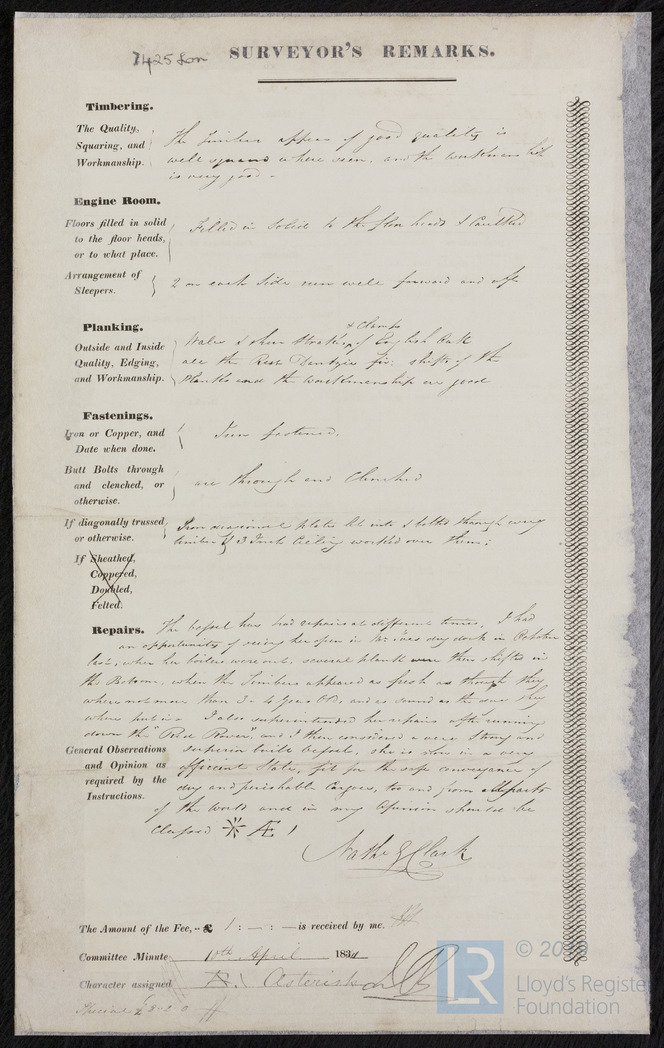 7425 Lon SURVEYOR'S REMARKS.
Timbering.
The Quality, Squaring, and Workmanship.
The Timbers appear of good quality is
well squared where seen, and the workmanship
is very good -
Engine Room.
Floors filled in solid to the floor heads, or to what place.
Filled in solid to the floor heads & Caulked
Arrangement of Sleepers.
2 on each side run well forward and aft
Planking.
Outside and Inside Quality, Edging, and Workmanship.
& Clamps
Wales & sheer strakes of English Oak
all the Rest Dantzic fir: shifts of the
Planks and the workmanship are good
Fastenings.
Iron or Copper, and Date when done.
Iron fastened.
Butt Bolts through and clenched, or otherwise.
are through and Clenched
If diagonally trussed, or otherwise.
Iron plates let into & bolted through every
timber & 3 Inch Ceiling worked over them:
If Sheathed, Coppered, Doubled, Felted.
Repairs.
The vessel has had repairs at different times, I had
an opportunity of seeing her open in dry dock in October
last, when her boilers were out, several planks were then shifted in
the Bottom, when the Timbers appeared as fresh as though they
where not more than 3 - 4 years old, and as sound as the day they
where put in I also superintended her repairs after running
down the "Red Rover" and I then considered a very strong and
General Observations and Opinion as required by the Instructions.
superior built vessel, she is now in a very
efficient State, fit for the safe conveyance of
dry and perishable Cargoes, too and from all parts
of the World and in my Opinion should be
Classed Æ 1
The Amount of the Fee, .. £ 1 : — : — is received by me.
Committee Minute 10th April 1834
Character assigned Asterisk
Special £
LR
Lloyd's Register
Foundation